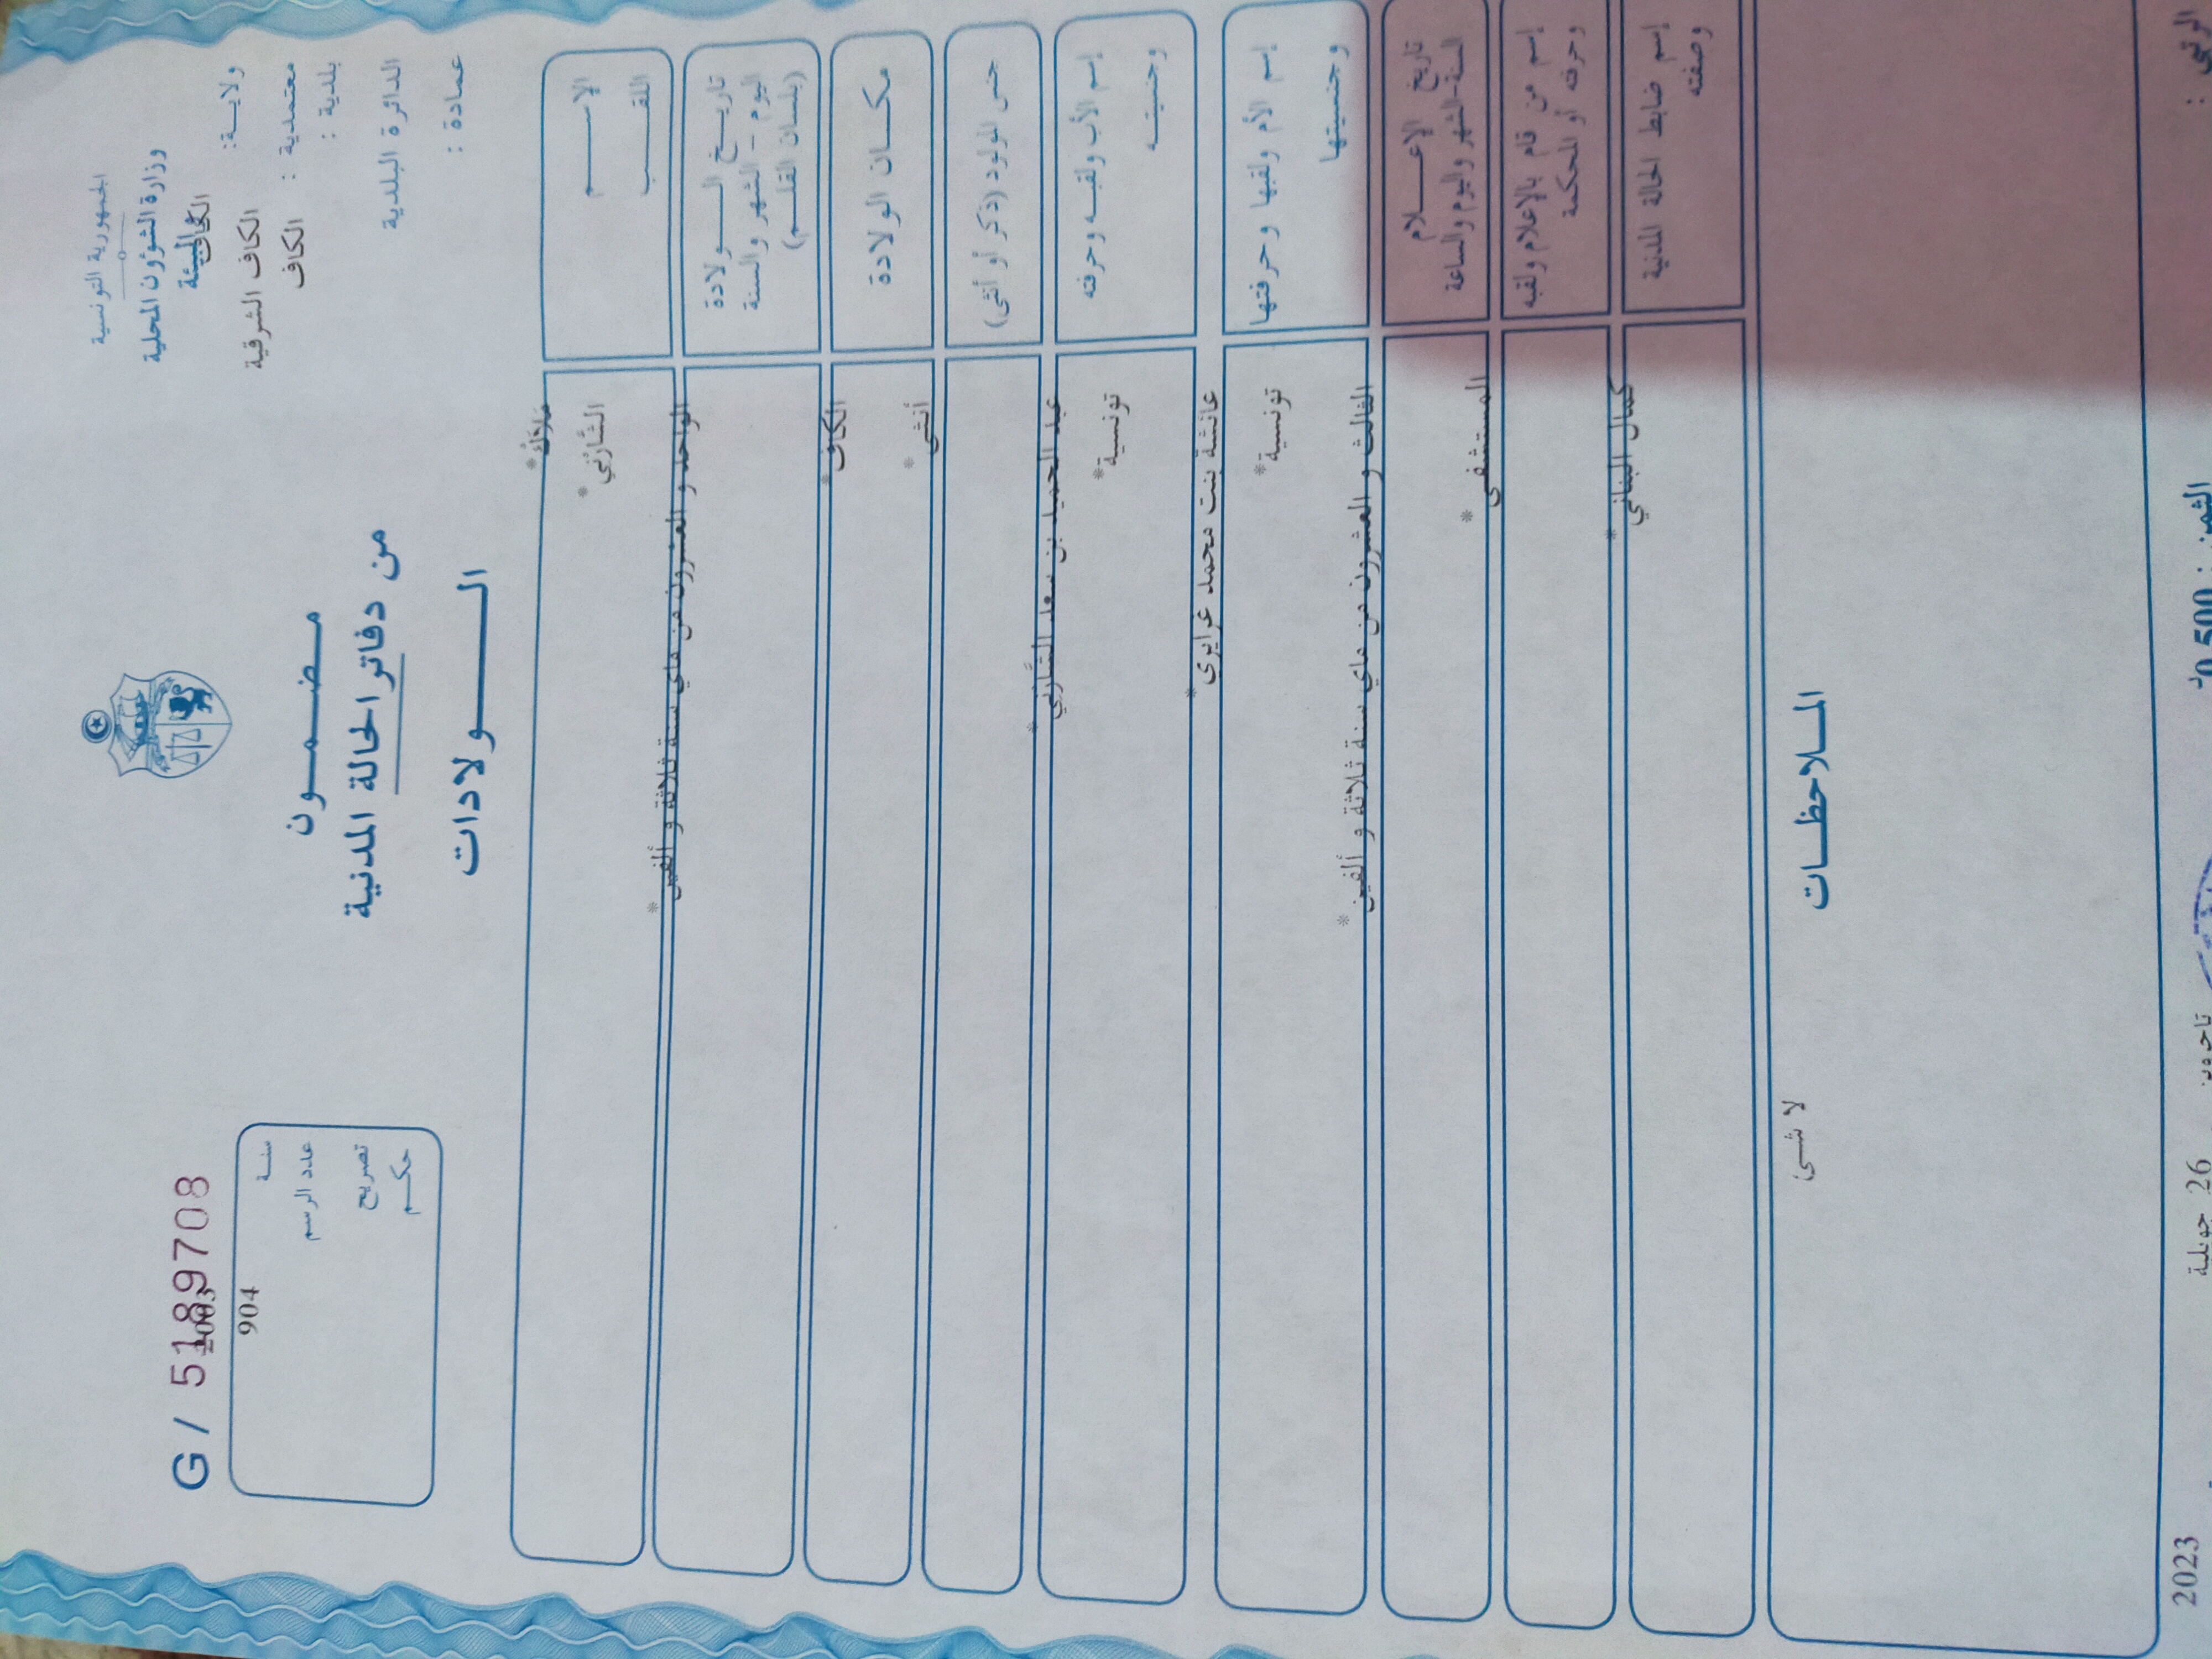 الجمهورية التونسية
وزارة الشؤون المحلية
والبيئة
ولايـة: الكاف
معتمدية : الكاف الشرقية
بلدية : الكاف
الدائرة البلدية
عمادة :
G / 5189708
سنـة 2003
عدد الرسم 904
تصريح
حكـم
مـضـمـون
من دفاتر الحالة المدنية
الـولادات
الإسـم ملاك *
اللقـب الشارني *
تاريـخ الـولادة
اليوم - الشهر والسنة
(بلسان القلـم)
الواحد و العشرون من ماي سنة ثلاثة و ألفين *
مكـان الولادة
الكاف *
جنس المولود (ذكر أو أنثى)
أنثى *
إسم الأب ولقبـه وحرفته
عبد الحميد بن سعد الشارني *
وجنسيتـه
تونسية *
إسم الأم ولقبها وحرفتها
عائشة بنت محمد غرايري *
وجنسيتها
تونسية *
تاريخ الإعـلام
السنة-الشهر واليوم والساعة
الثالث و العشرون من ماي سنة ثلاثة و ألفين *
إسم من قام بالإعلام ولقبه
وحرفته أو المحكمة
المستشفى *
إسم ضابط الحالة المدنية
وصفته
كمال البناني *
المـلاحظـات
لا شيء
الثمن : 0,500 د
26 جويلية 2023